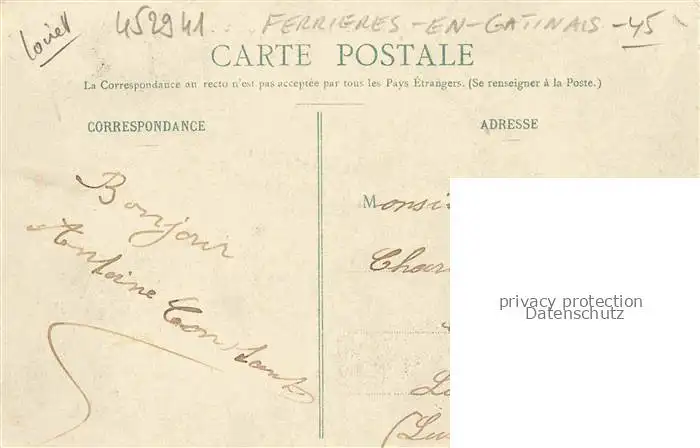 Loiret
452941
FERRIERES-EN-GATINAIS-45
CARTE POSTALE
La Correspondance au recto n'est pas acceptée par tous les Pays Étrangers. (Se renseigner à la Poste.)
CORRESPONDANCE
ADRESSE
Bonjour
Antoine Constant
Monsi
Char
privacy protection
Datenschutz